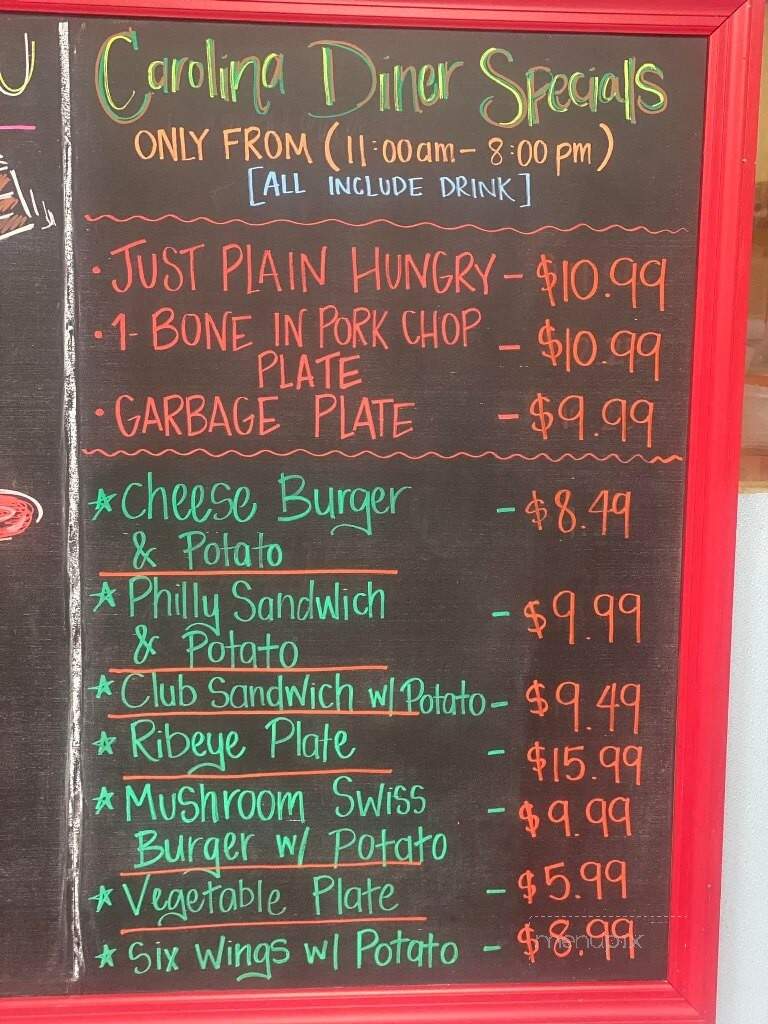 U
Carolina Diner Specials
ONLY FROM (11:00am - 8:00 pm)
[ALL INCLUDE DRINK]
· JUST PLAIN HUNGRY - $10.99
· 1- BONE IN PORK CHOP - $10.99
PLATE
· GARBAGE PLATE - $9.99
☆ Cheese Burger - $8.49
& Potato
☆ Philly Sandwich - $9.99
& Potato
☆ Club Sandwich w/ Potato - $9.49
☆ Ribeye Plate - $15.99
☆ Mushroom Swiss - $9.99
Burger w/ Potato
☆ Vegetable Plate - $5.99
☆ Six Wings w/ Potato - $8.99
menupix